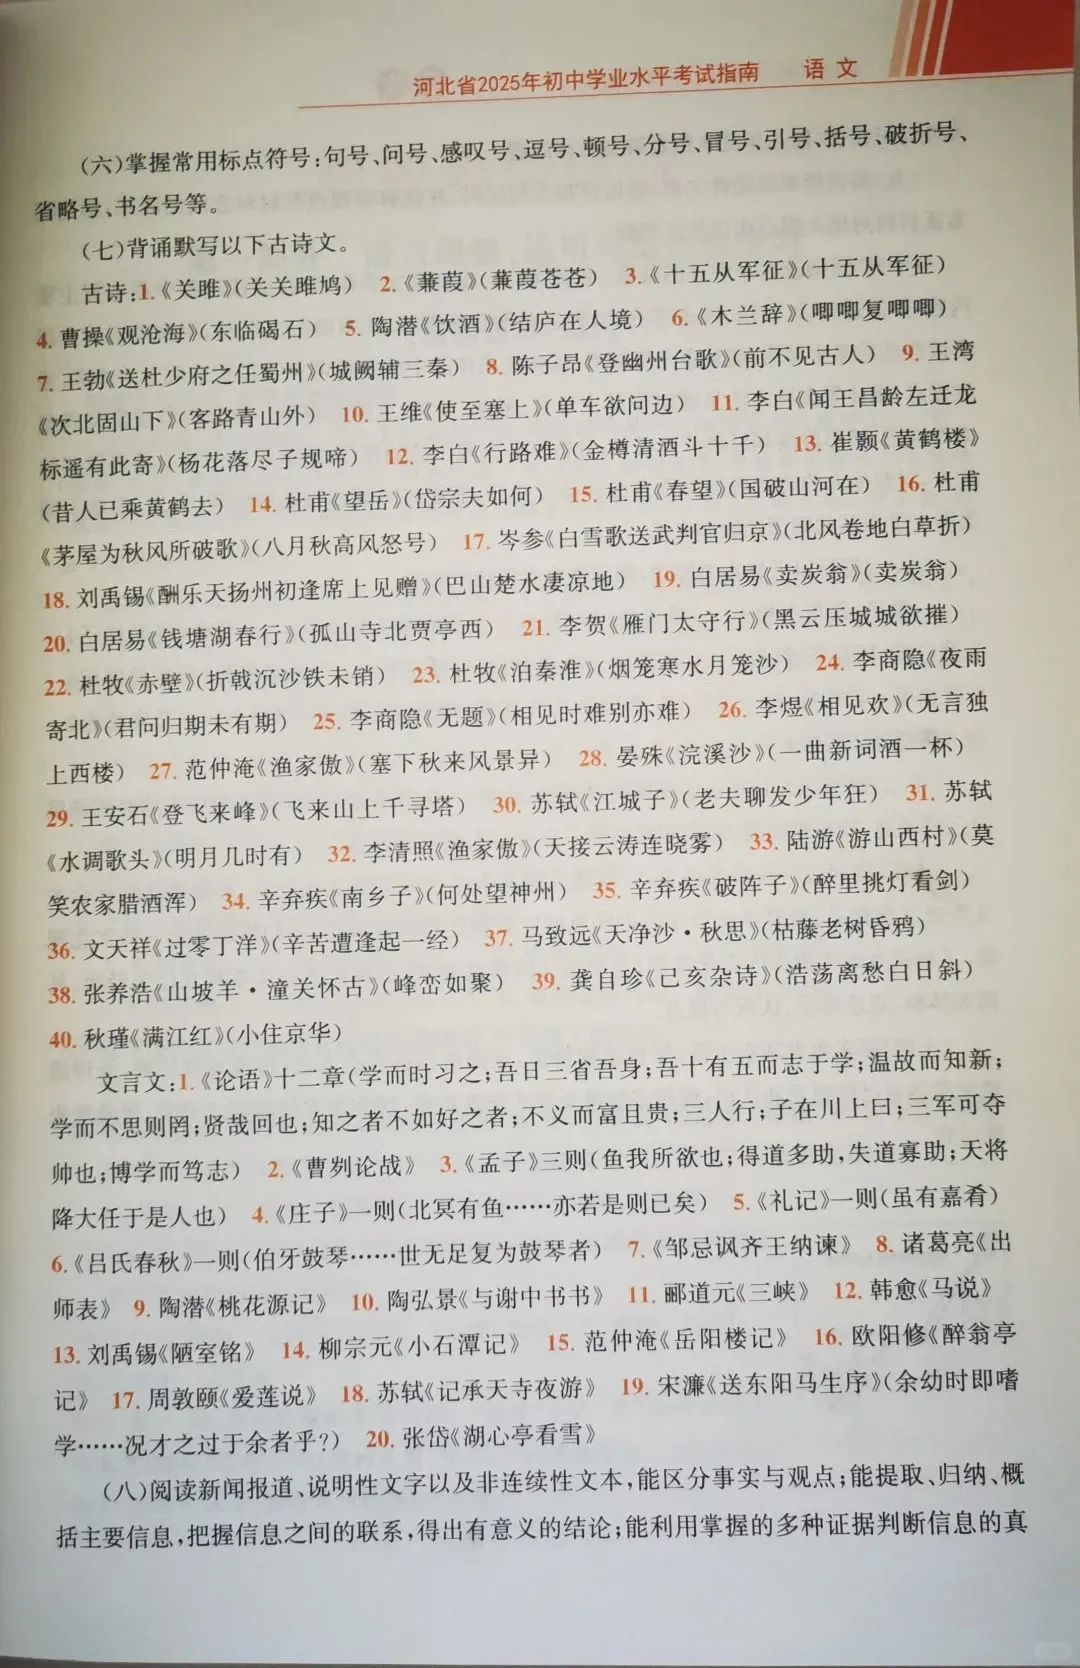 河北省2025年初中学业水平考试指南 语文
(六)掌握常用标点符号:句号、问号、感叹号、逗号、顿号、分号、冒号、引号、括号、破折号、
省略号、书名号等。
(七)背诵默写以下古诗文。
古诗:1.《关雎》(关关雎鸠) 2.《蒹葭》(蒹葭苍苍) 3.《十五从军征》(十五从军征)
4. 曹操《观沧海》(东临碣石) 5. 陶潜《饮酒》(结庐在人境) 6.《木兰辞》(唧唧复唧唧)
7. 王勃《送杜少府之任蜀州》(城阙辅三秦) 8. 陈子昂《登幽州台歌》(前不见古人) 9. 王湾
《次北固山下》(客路青山外) 10. 王维《使至塞上》(单车欲问边) 11. 李白《闻王昌龄左迁龙
标遥有此寄》(杨花落尽子规啼) 12. 李白《行路难》(金樽清酒斗十千) 13. 崔颢《黄鹤楼》
(昔人已乘黄鹤去) 14. 杜甫《望岳》(岱宗夫如何) 15. 杜甫《春望》(国破山河在) 16. 杜甫
《茅屋为秋风所破歌》(八月秋高风怒号) 17. 岑参《白雪歌送武判官归京》(北风卷地白草折)
18. 刘禹锡《酬乐天扬州初逢席上见赠》(巴山楚水凄凉地) 19. 白居易《卖炭翁》(卖炭翁)
20. 白居易《钱塘湖春行》(孤山寺北贾亭西) 21. 李贺《雁门太守行》(黑云压城城欲摧)
22. 杜牧《赤壁》(折戟沉沙铁未销) 23. 杜牧《泊秦淮》(烟笼寒水月笼沙) 24. 李商隐《夜雨
寄北》(君问归期未有期) 25. 李商隐《无题》(相见时难别亦难) 26. 李煜《相见欢》(无言独
上西楼) 27. 范仲淹《渔家傲》(塞下秋来风景异) 28. 晏殊《浣溪沙》(一曲新词酒一杯)
29. 王安石《登飞来峰》(飞来山上千寻塔) 30. 苏轼《江城子》(老夫聊发少年狂) 31. 苏轼
《水调歌头》(明月几时有) 32. 李清照《渔家傲》(天接云涛连晓雾) 33. 陆游《游山西村》(莫
笑农家腊酒浑) 34. 辛弃疾《南乡子》(何处望神州) 35. 辛弃疾《破阵子》(醉里挑灯看剑)
36. 文天祥《过零丁洋》(辛苦遭逢起一经) 37. 马致远《天净沙·秋思》(枯藤老树昏鸦)
38. 张养浩《山坡羊·潼关怀古》(峰峦如聚) 39. 龚自珍《己亥杂诗》(浩荡离愁白日斜)
40. 秋瑾《满江红》(小住京华)
文言文:1.《论语》十二章(学而时习之;吾日三省吾身;吾十有五而志于学;温故而知新;
学而不思则罔;贤哉回也;知之者不如好之者;不义而富且贵;三人行;子在川上曰;三军可夺
帅也;博学而笃志) 2.《曹刿论战》 3.《孟子》三则(鱼我所欲也;得道多助,失道寡助;天将
降大任于是人也) 4.《庄子》一则(北冥有鱼……亦若是则已矣) 5.《礼记》一则(虽有嘉肴)
6.《吕氏春秋》一则(伯牙鼓琴……世无足复为鼓琴者) 7.《邹忌讽齐王纳谏》 8. 诸葛亮《出
师表》 9. 陶潜《桃花源记》 10. 陶弘景《与谢中书书》 11. 郦道元《三峡》 12. 韩愈《马说》
13. 刘禹锡《陋室铭》 14. 柳宗元《小石潭记》 15. 范仲淹《岳阳楼记》 16. 欧阳修《醉翁亭
记》 17. 周敦颐《爱莲说》 18. 苏轼《记承天寺夜游》 19. 宋濂《送东阳马生序》(余幼时即嗜
学……况才之过于余者乎?) 20. 张岱《湖心亭看雪》
(八)阅读新闻报道、说明性文字以及非连续性文本,能区分事实与观点;能提取、归纳、概
括主要信息,把握信息之间的联系,得出有意义的结论;能利用掌握的多种证据判断信息的真